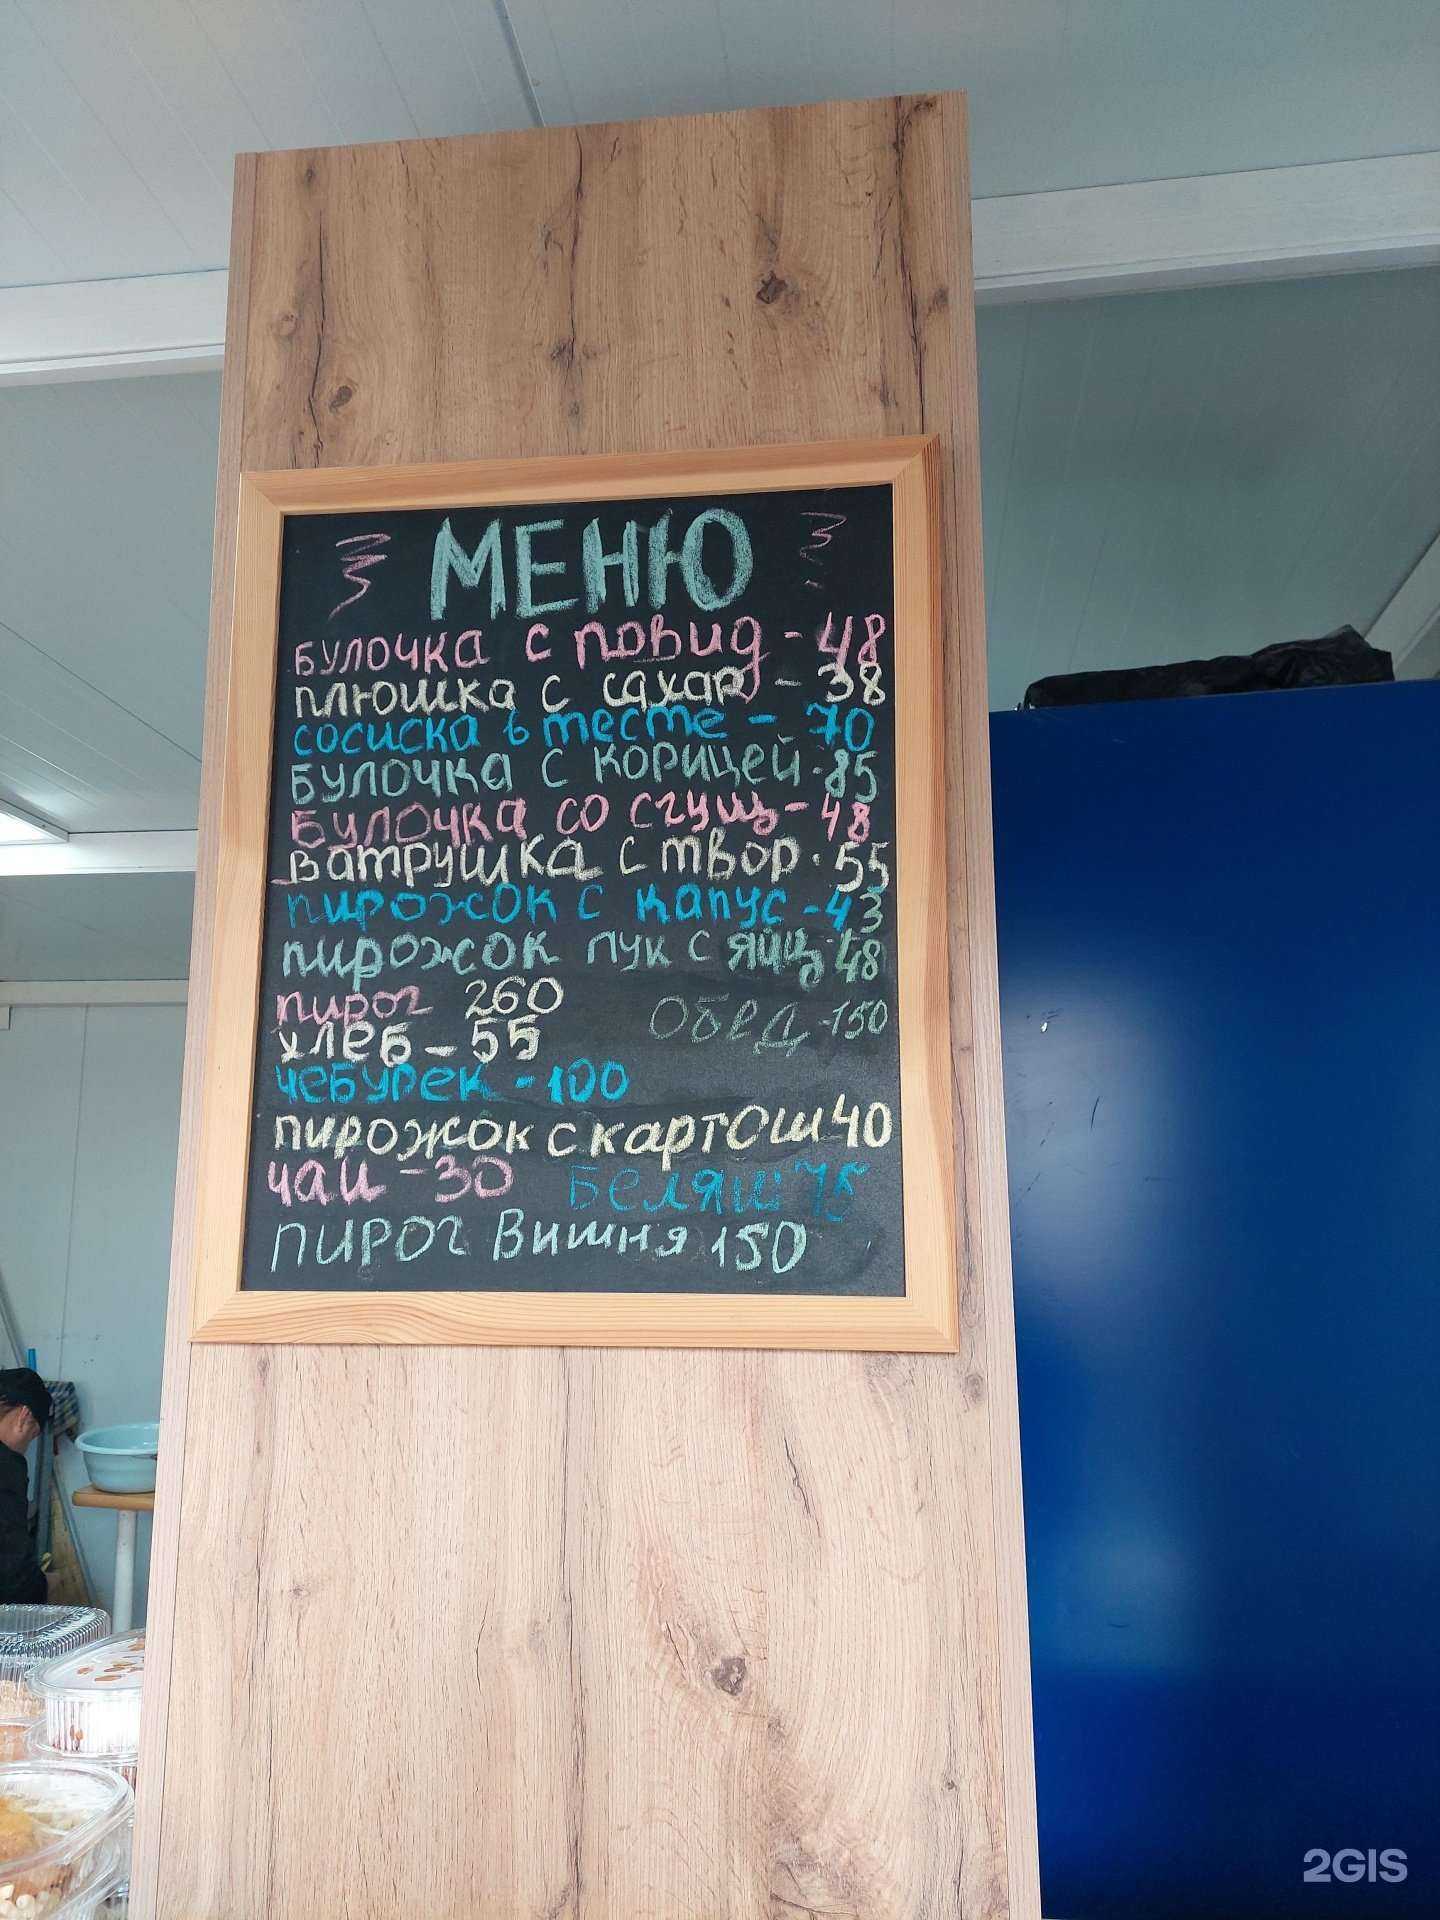 МЕНЮ
БУЛОЧКА С ПОВИД - 48
ПЛЮШКА С САХАР - 38
СОСИСКА в ТЕСТЕ - 70
БУЛОЧКА С КОРИЦЕЙ - 85
БУЛОЧКА СО СГУЩ - 48
ВАТРУШКА С ТВОР - 55
ПИРОЖОК С КАПУС - 43
ПИРОЖОК ЛУК С ЯЙЦ - 48
ПИРОГ 260
ОБЕД - 150
ХЛЕБ - 55
ЧЕБУРЕК - 100
ПИРОЖОК С КАРТОШ 40
ЧАЙ - 30 БЕЛЯШ 75
ПИРОГ ВИШНЯ 150
2GIS